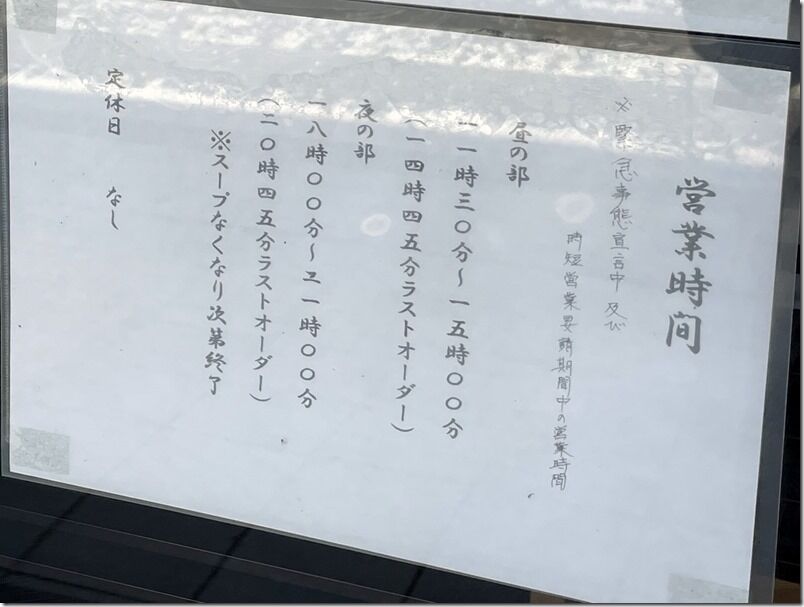 営業時間
※緊急事態宣言中 及び
時短営業要請期間中の営業時間
昼の部
一一時三〇分～一五時〇〇分
(一四時四五分ラストオーダー)
夜の部
一八時〇〇分～二一時〇〇分
(二〇時四五分ラストオーダー)
※スープなくなり次第終了
定休日 なし